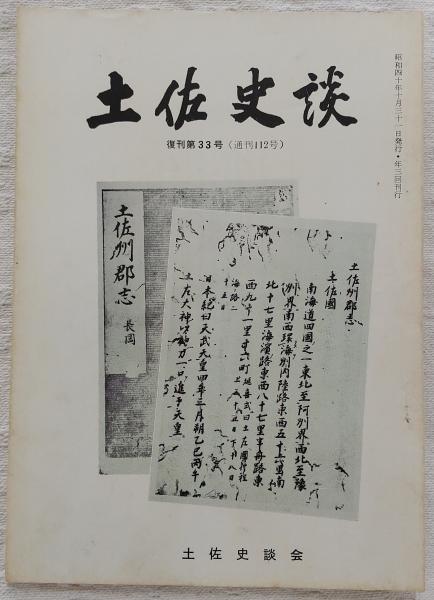 土佐史談
復刊第33号（通刊112号）
昭和四十年十月三十一日発行・年三回刊行
土佐州郡志
長岡
土佐州郡志
土佐國
南海道四國之一東北至阿州界西北至豫
州界南西環海別内陸路東西五十六里南
北十七里海濱路東西八十七里半舟路東
西九十一里十六町延喜式曰土左國行程
上三十五日下十八日
海路二
十五日
日本紀曰天武天皇四年三月朔乙巳丙午
土左大神以神刀一口進于天皇
土佐史談会